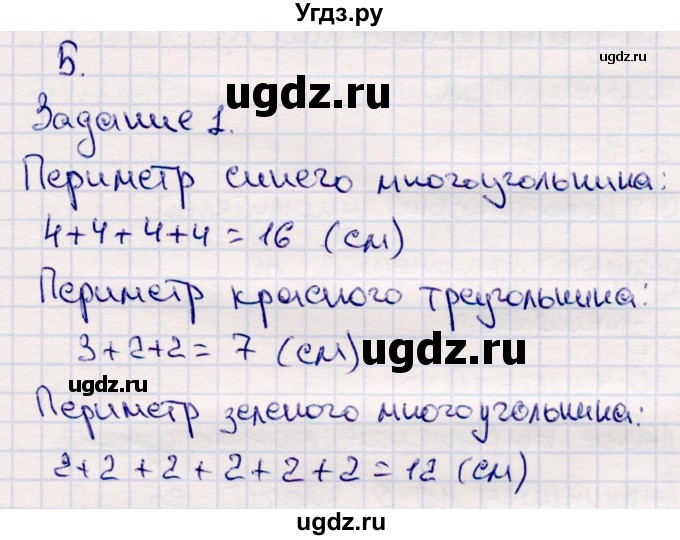 Угдз.ру
5.
ugdz.ru
ugdz.ru
Задание 1.
Периметр синего многоугольника:
4+4+4+4=16 (см)
Периметр красного треугольника:
3+2+2= 7 (см)
ugdz.ru
ugdz.ru
Периметр зеленого многоугольника:
2+2+2+2+2+2=12 (см)
ugdz.ru